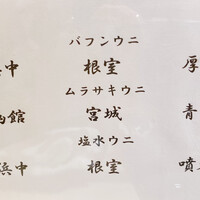 バフンウニ
浜中 根室 厚
ムラサキウニ
函館 宮城 青
塩水ウニ
浜中 根室 噴